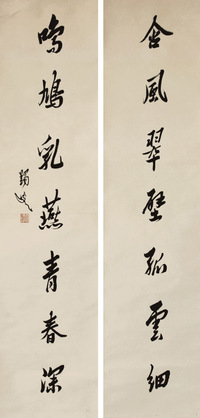 含風翠壁孤雲細
鳴鳩乳燕青春深